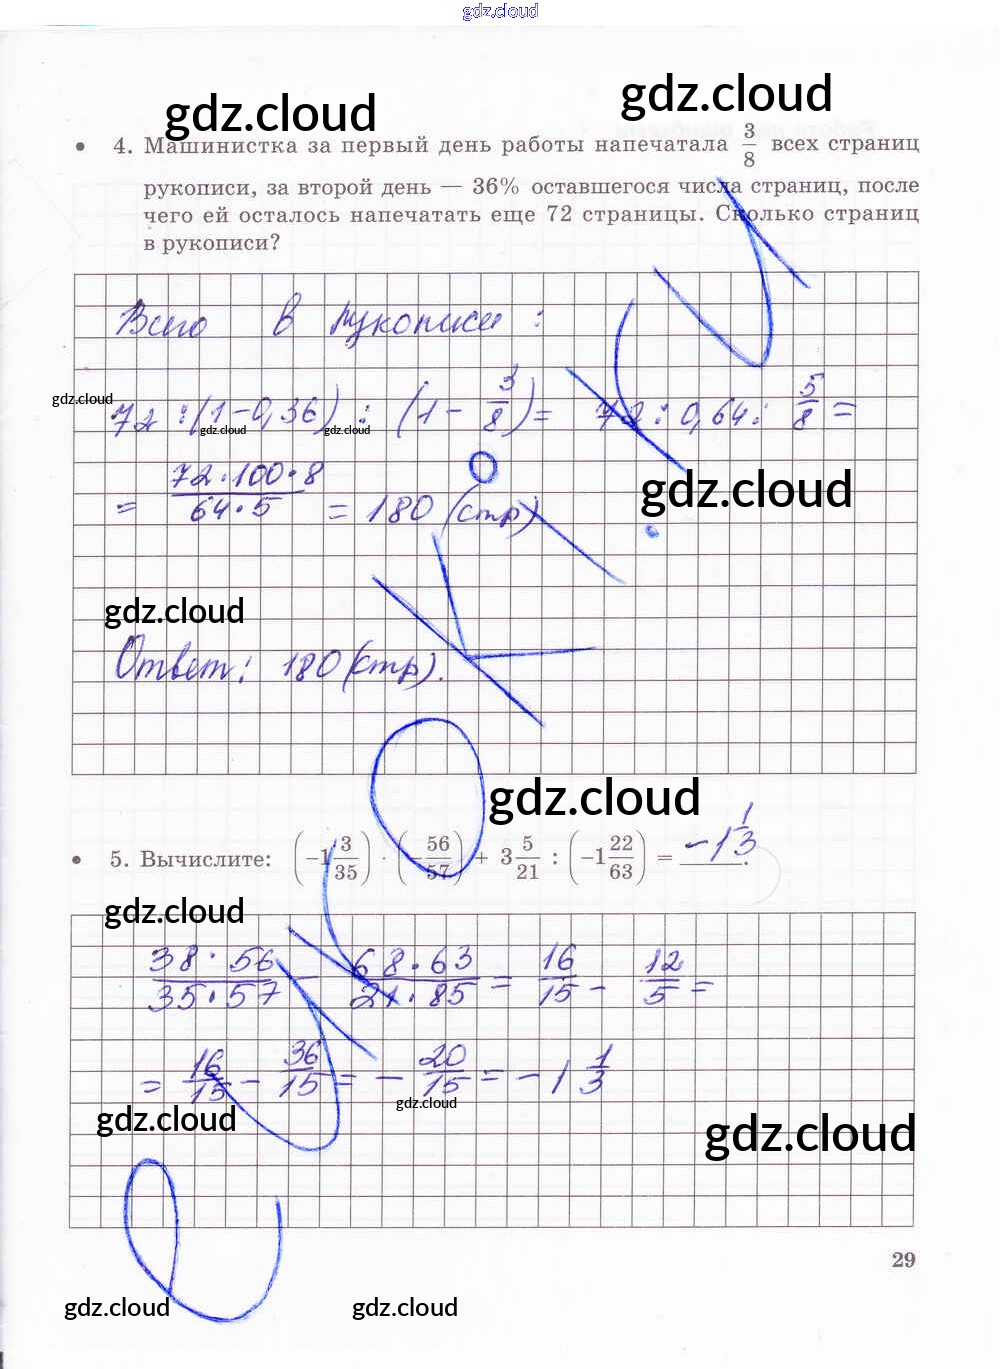 gdz.cloud
gdz.cloud
gdz.cloud
4. Машинистка за первый день работы напечатала 3/8 всех страниц
рукописи, за второй день — 36% оставшегося числа страниц, после
чего ей осталось напечатать еще 72 страницы. Сколько страниц
в рукописи?
Всего в рукописи :
gdz.cloud
72 : (1-0,36) : (1 - 3/8) = 72 : 0,64 : 5/8 =
gdz.cloud gdz.cloud
= 72·100·8/64·5 = 180 (стр)
gdz.cloud
gdz.cloud
Ответ: 180 (стр).
gdz.cloud
5. Вычислите: (-1 3/35) · (-56/57) + 3 5/21 : (-1 22/63) = -1 1/3.
gdz.cloud
38·56/35·57 - 68·63/21·85 = 16/15 - 12/5 =
= 16/15 - 36/15 = - 20/15 = -1 1/3
gdz.cloud
gdz.cloud
gdz.cloud
29
gdz.cloud gdz.cloud